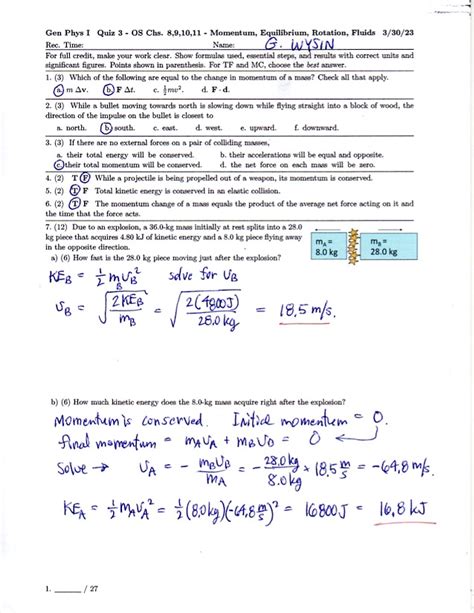 Gen Phys I Quiz 3 - OS Chs. 8,9,10,11 - Momentum, Equilibrium, Rotation, Fluids 3/30/23
Rec. Time: Name: G. WYSIN
For full credit, make your work clear. Show formulas used, essential steps, and results with correct units and
significant figures. Points shown in parenthesis. For TF and MC, choose the best answer.
1. (3) Which of the following are equal to the change in momentum of a mass? Check all that apply.
a. m Δv. b. F Δt. c. ½mv². d. F·d.
2. (3) While a bullet moving towards north is slowing down while flying straight into a block of wood, the
direction of the impulse on the bullet is closest to
a. north. b. south. c. east. d. west. e. upward. f. downward.
3. (3) If there are no external forces on a pair of colliding masses,
a. their total energy will be conserved. b. their accelerations will be equal and opposite.
c. their total momentum will be conserved. d. the net force on each mass will be zero.
4. (2) T F While a projectile is being propelled out of a weapon, its momentum is conserved.
5. (2) T F Total kinetic energy is conserved in an elastic collision.
6. (2) T F The momentum change of a mass equals the product of the average net force acting on it and
the time that the force acts.
7. (12) Due to an explosion, a 36.0-kg mass initially at rest splits into a 28.0
kg piece that acquires 4.80 kJ of kinetic energy and a 8.0 kg piece flying away
in the opposite direction.
m_A = 8.0 kg
m_B = 28.0 kg
a) (6) How fast is the 28.0 kg piece moving just after the explosion?
KE_B = ½ m_B v_B² solve for v_B
v_B = √(2KE_B / m_B) = √(2(4800J) / 28.0 kg) = 18.5 m/s.
b) (6) How much kinetic energy does the 8.0-kg mass acquire right after the explosion?
Momentum is conserved. Initial momentum = 0.
final momentum = m_A v_A + m_B v_B = 0 ←
Solve → v_A = - m_B v_B / m_A = - 28.0 kg / 8.0 kg × 18.5 m/s = -64.8 m/s.
KE_A = ½ m_A v_A² = ½ (8.0 kg)(-64.8 m/s)² = 16800 J = 16.8 kJ
1. ______ / 27